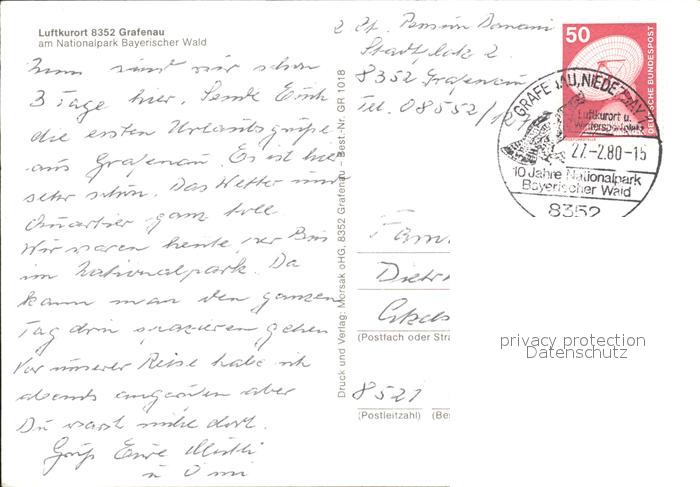 Luftkurort 8352 Grafenau
am Nationalpark Bayerischer Wald
Nun sind wir schon
3 Tage hier. Sende Euch
die ersten Urlaubsgrüße
aus Grafenau. Es ist hier
sehr schön. Das Wetter und
Quartier ganz toll.
Wir waren heute per Bus
im Nationalpark. Da
kann man den ganzen
Tag drin spazieren gehen
Vor unserer Reise habe ich
abends angerufen aber
Du warst nicht dort.
Gruß Eure Mutti
u Omi
Druck und Verlag: Morsak oHG, 8352 Grafenau – Best.-Nr. GR 1018
z Zt. Pension
Stadtplatz 2
8352 Grafenau
Tel. 08552/12
50
DEUTSCHE BUNDESPOST
GRAFENAU, NIEDERBAY 1
Luftkurort u.
Wintersportplatz
27.-2.80-15
10 Jahre Nationalpark
Bayerischer Wald
8352
Fam
Dietr
(Postfach oder Stra
8521
(Postleitzahl) (Be
privacy protection
Datenschutz